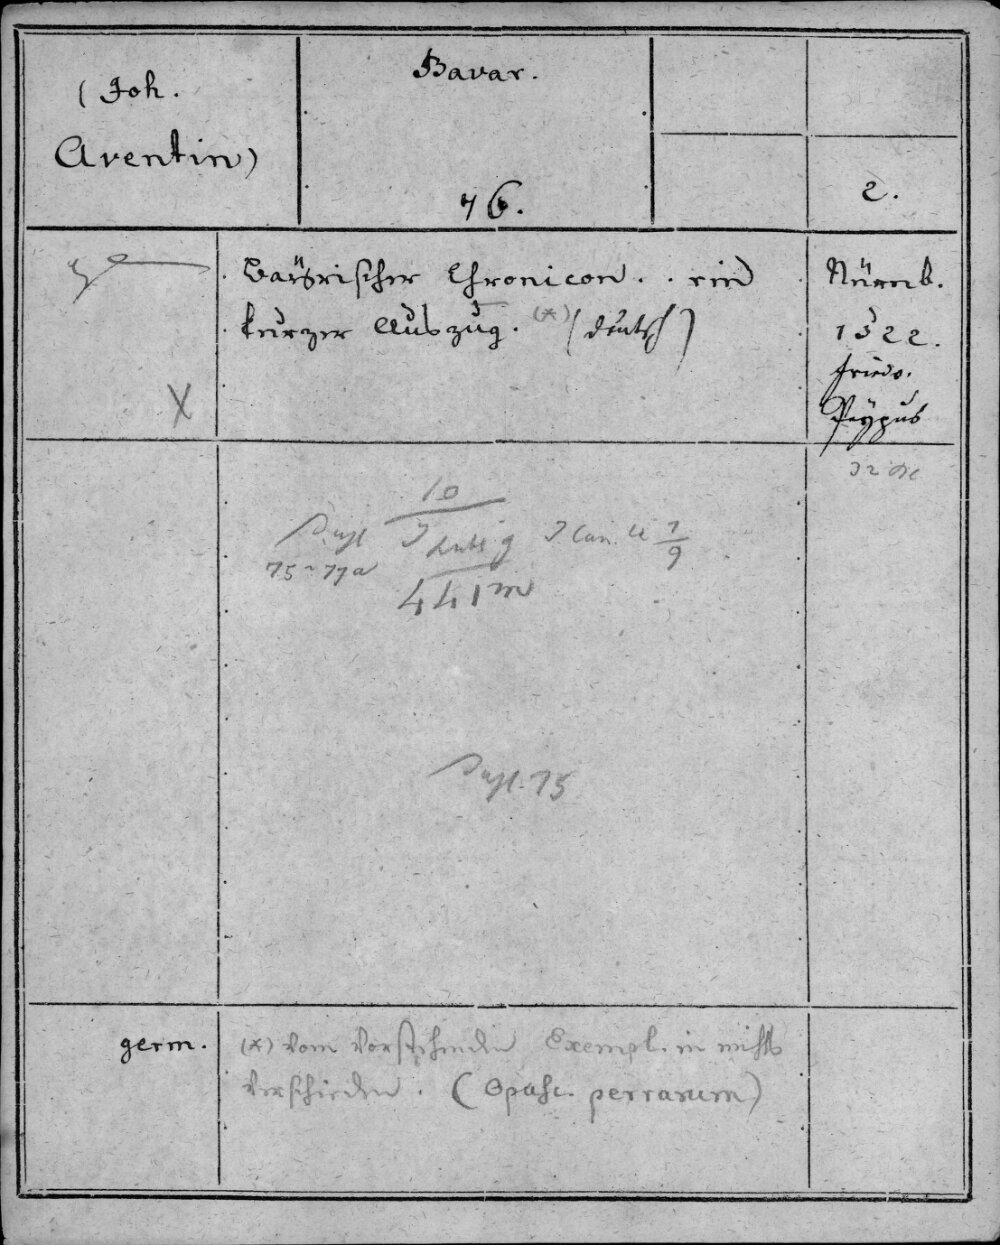 (Joh.
Aventin)
Bavar.
76.
2.
Bayrischer Chronicon. . ein
kurzer Auszug. (*) (deutsch)
Nürnb.
1522.
Friedr.
Peypus
X
10
75-77a
441m
75
germ.
(*) vom vorstehenden Exempl. in nichts
verschieden. (Opusc. perrarum)